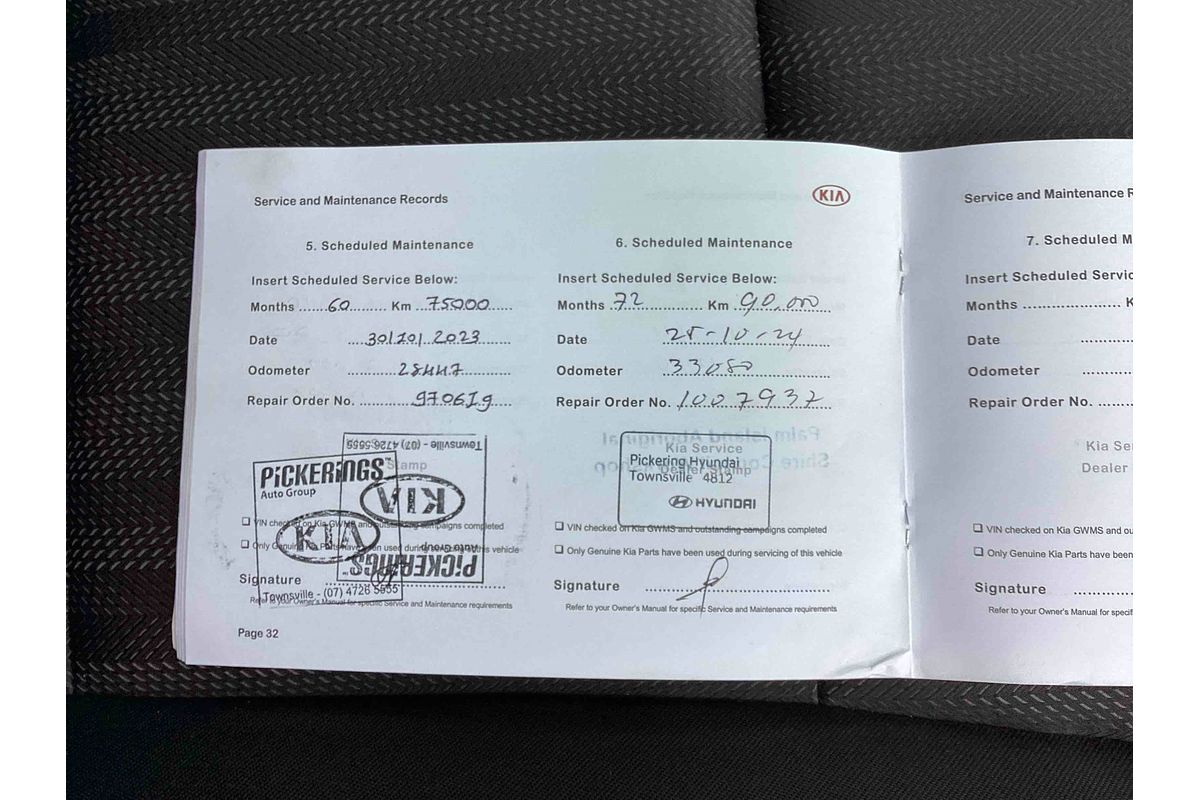 Service and Maintenance Records
KIA
5. Scheduled Maintenance
Insert Scheduled Service Below:
Months 60 Km 75000
Date 30/10/2023
Odometer 28447
Repair Order No. 970619
Stamp
Townsville - (07) 4726 5555
PiCKERINGS
Auto Group
KIA
KIA
VIN checked on Kia GWMS and outstanding campaigns completed
Only Genuine Kia Parts have been used during servicing of this vehicle
Auto Group
PiCKERINGS
Signature
Townsville - (07) 4726 5555
Refer to your Owner's Manual for specific Service and Maintenance requirements
Page 32
6. Scheduled Maintenance
Insert Scheduled Service Below:
Months 72 Km 90,000
Date 25-10-24
Odometer 33080
Repair Order No. 1007937
Kia Service
Dealer Stamp
Pickering Hyundai
Townsville 4812
HYUNDAI
VIN checked on Kia GWMS and outstanding campaigns completed
Only Genuine Kia Parts have been used during servicing of this vehicle
Signature
Refer to your Owner's Manual for specific Service and Maintenance requirements
Service and Maintenance R
7. Scheduled M
Insert Scheduled Servic
Months K
Date
Odometer
Repair Order No.
Kia Se
Dealer
VIN checked on Kia GWMS and ou
Only Genuine Kia Parts have been
Signature
Refer to your Owner's Manual for specif